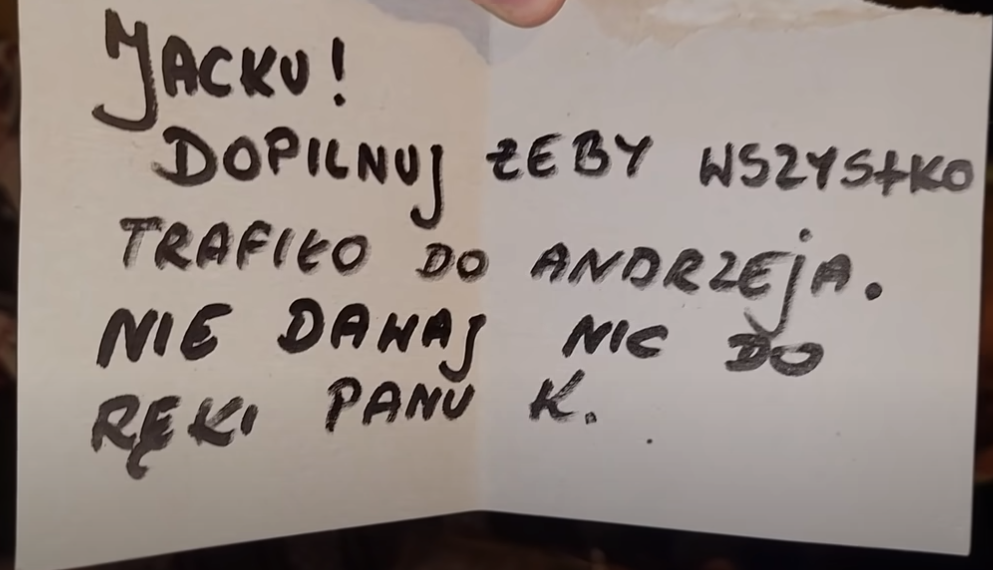 JACKU!
DOPILNUJ ŻEBY WSZYSTKO
TRAFIŁO DO ANDRZEJA.
NIE DAWAJ NIC DO
RĘKI PANU K.